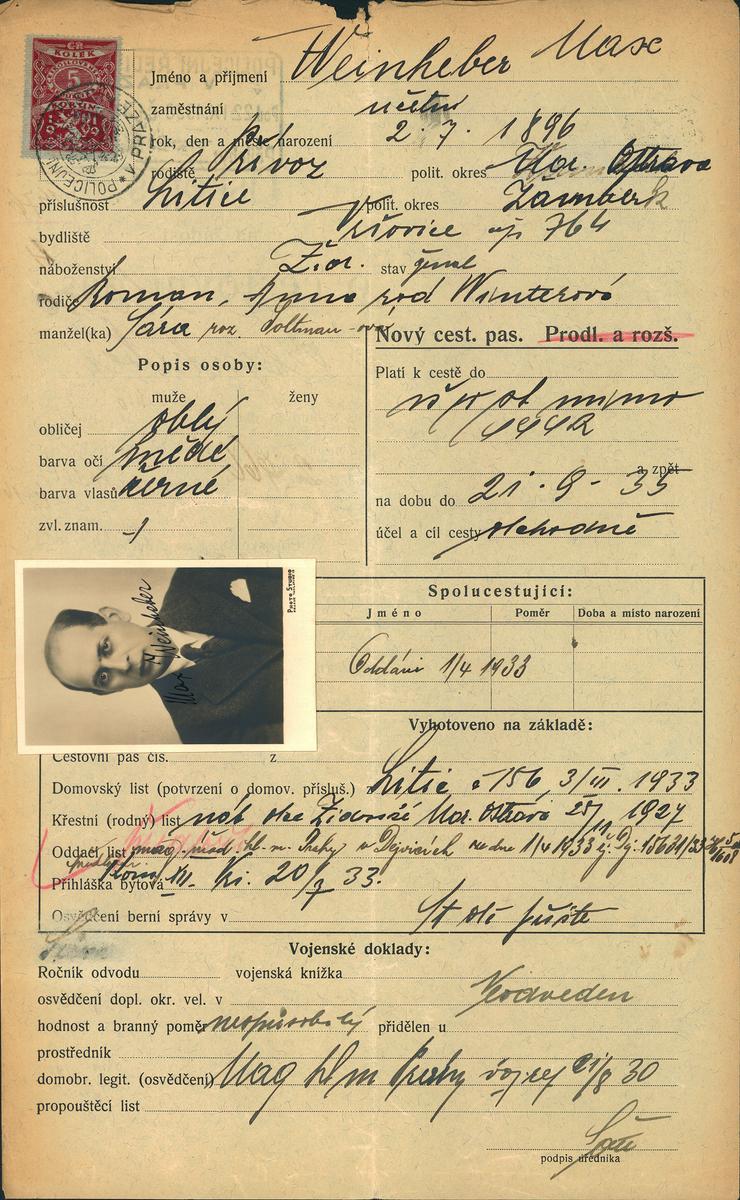 ČR
KOLEK
5
KORUN
POLICEJNÍ
V PRAZE
Jméno a přijmení Weinheber Max
zaměstnání účetní
rok, den a místo narození 2. 7. 1896
rodiště Přívoz polit. okres Mor. Ostrava
příslušnost Litice polit. okres Žamberk
bydliště Vršovice čp 764
náboženství Žid. stav ženat
rodiče Roman, Anna rod Winterová
manžel(ka) Sára roz.
Nový cest. pas. Prodl. a rozš.
Popis osoby:
muže ženy
obličej oblý
barva očí hnědé
barva vlasů černé
zvl. znam.
Platí k cestě do
a zpět
na dobu do 21. 9. 35
účel a cíl cesty obchodně
Max Weinheber
PHOTO STUDIO
Spolucestující:
Jméno Poměr Doba a místo narození
Oddáni 1/4 1933
Vyhotoveno na základě:
Cestovní pas čís. z
Domovský list (potvrzení o domov. přísluš.) Litic č 156, 3/III. 1933
Křestní (rodný) list náb. obce Židovské Mor. Ostrava 1927
Oddací list mag. hl. m. Prahy v Dejvicích ze dne 1/4 1933
Přihláška bytová XII. 20/7 33.
Osvědčení berní správy v
Vojenské doklady:
Ročník odvodu vojenská knížka
osvědčení dopl. okr. vel. v Neodveden
hodnost a branný poměr nezpůsobilý přidělen u
prostředník
domobr. legit. (osvědčení) Mag hl m Prahy 21/8 30
propouštěcí list
podpis úředníka